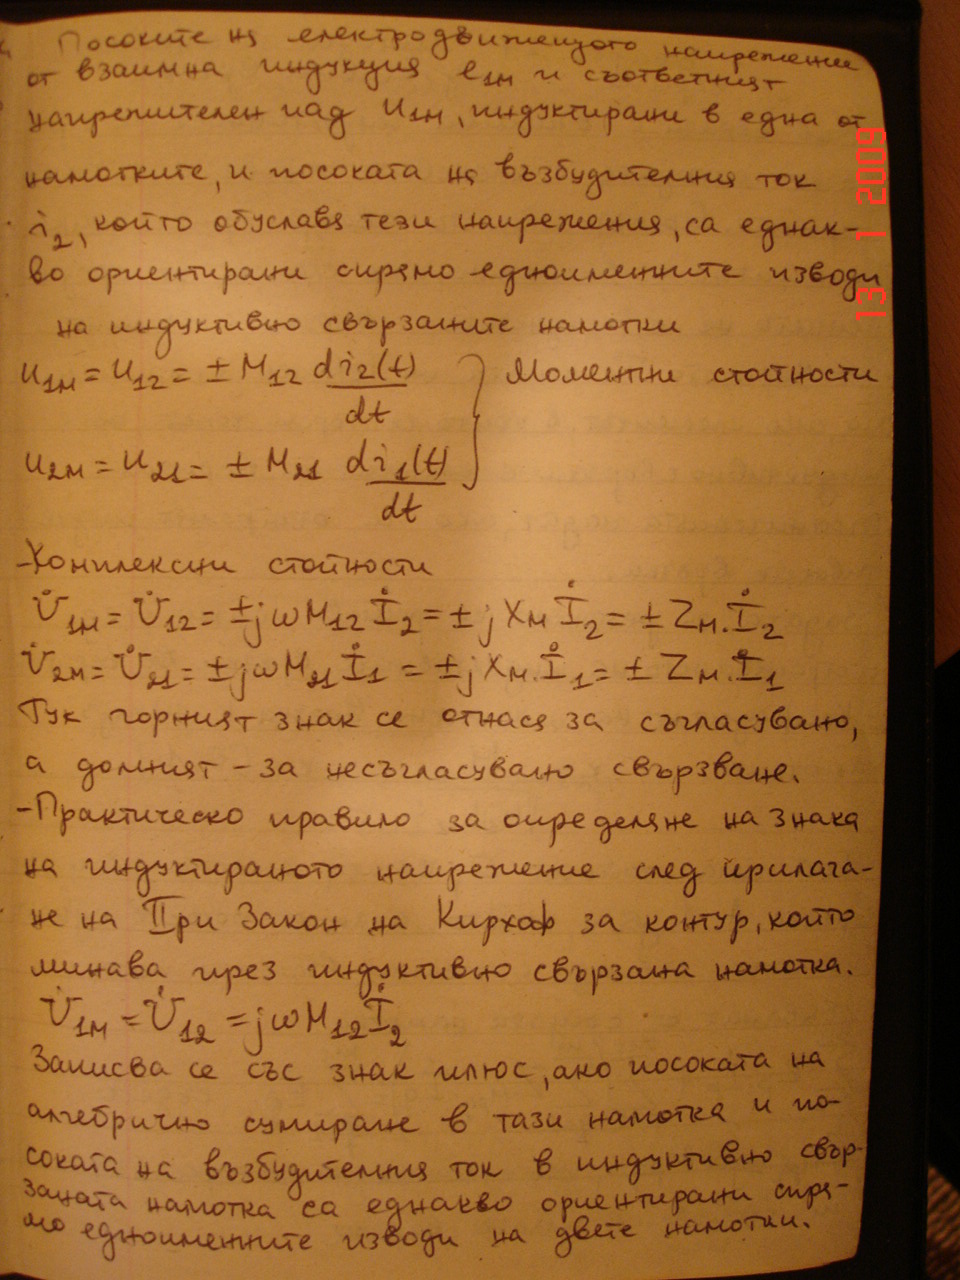 Посоките на електродвижещото напрежение
от взаимна индукция e1м и съответният
напрежителен пад u1м, индуктирани в една от
намотките, и посоката на възбудителния ток
i2, който обуславя тези напрежения, са еднак-
во ориентирани спрямо едноименните изводи
на индуктивно свързаните намотки
u1м = u12 = ± M12 di2(t)/dt } Моментни стойности
u2м = u21 = ± M21 di1(t)/dt
-Комплексни стойности
U̇1м = U̇12 = ±jωM12 İ2 = ±jXм İ2 = ±Zм.İ2
U̇2м = U̇21 = ±jωM21 İ1 = ±jXм.İ1 = ±Zм.İ1
Тук горният знак се отнася за съгласувано,
а долният – за несъгласувано свързване.
-Практическо правило за определяне на знака
на индуктираното напрежение след прилага-
не на IIри Закон на Кирхаф за контур, който
минава през индуктивно свързана намотка.
U̇1м = U̇12 = jωM12 İ2
Записва се със знак плюс, ако посоката на
алгебрично сумиране в тази намотка и по-
соката на възбудителния ток в индуктивно свър-
заната намотка са еднакво ориентирани спря-
мо едноименните изводи на двете намотки.
13 1 2009